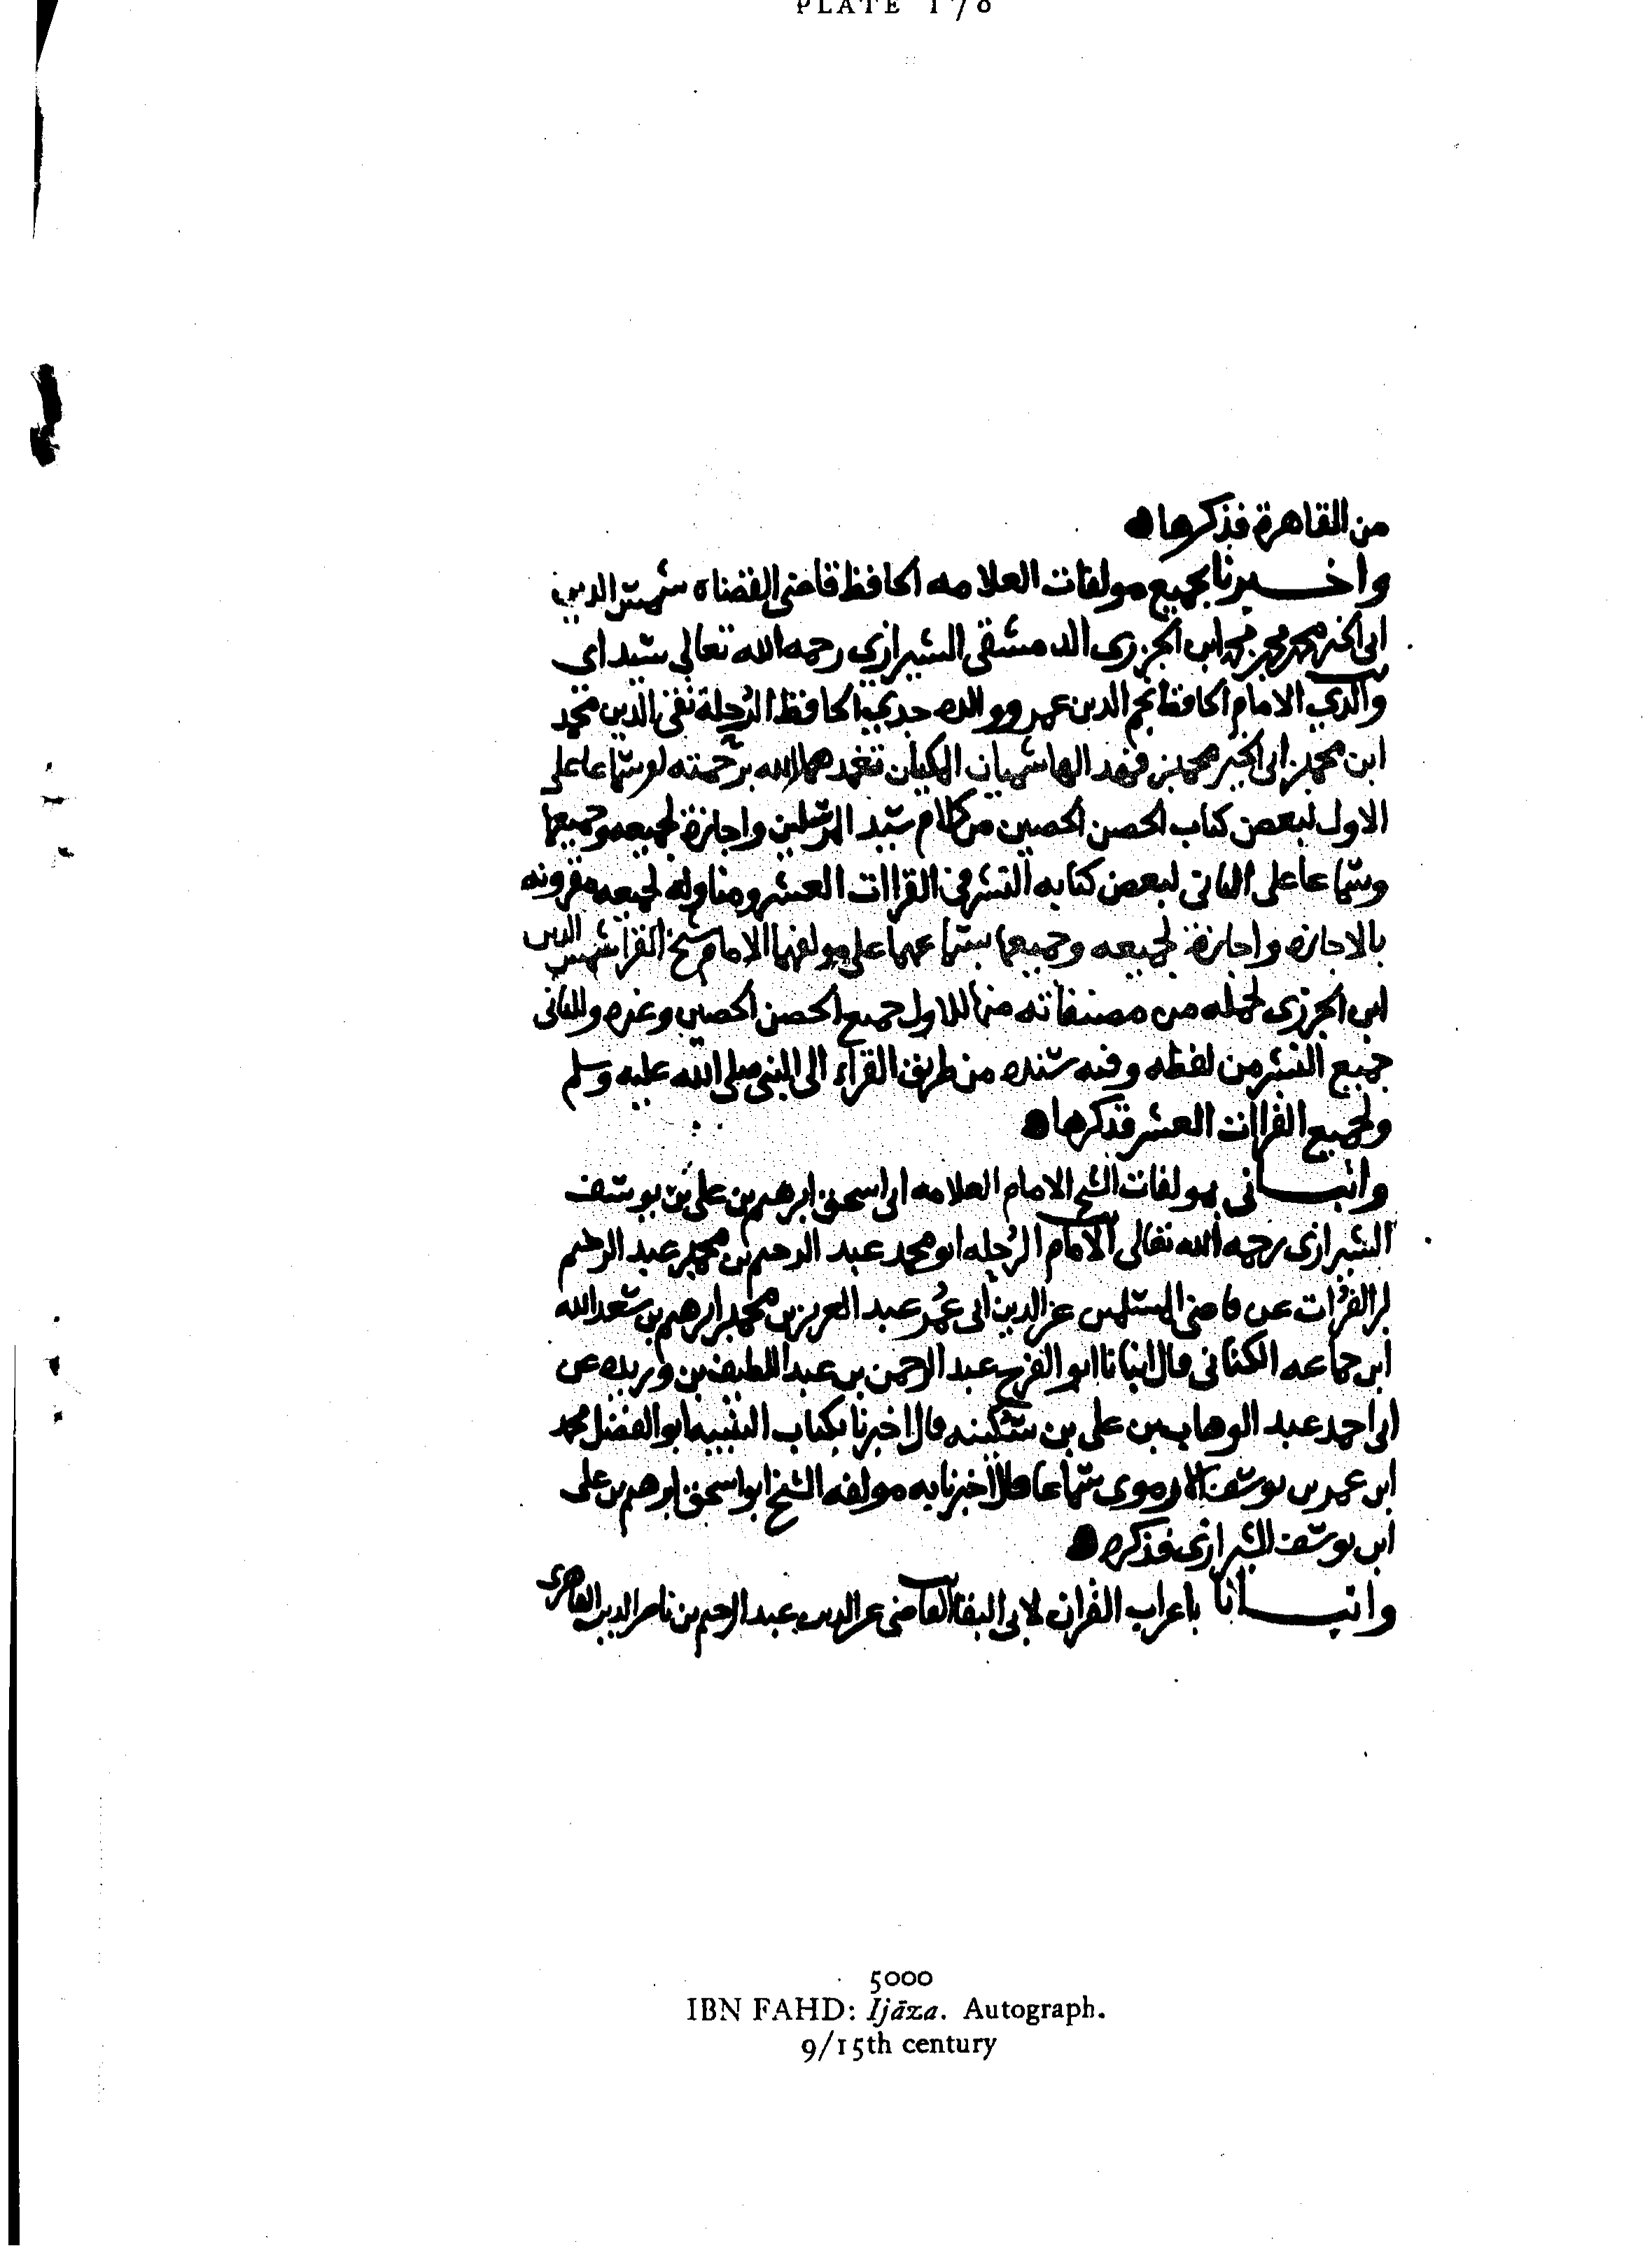 PLATE 178
من القاهرة فذكرها
واخبرنا بجميع مولفات العلامه الحافظ قاضي القضاه شمس الدين
ابي الخير محمد بن محمد بن محمد ابن الجزري الدمشقي الشيرازي رحمه الله تعالى سيداي
والدي الامام الحافظ نجم الدين عمر ووالده جدي الحافظ الرحلة تقي الدين محمد
ابن محمد بن ابي الخير محمد بن فهد الهاشميان المكيان تغمدهما الله برحمته سماعا على
الاول لبعض كتاب الحصن الحصين من كلام سيد المرسلين واجازة لجميعه وجميعها
وسماعا على الثاني لبعض كتابه النشر في القراات العشر ومناولة لجميعه مقرونه
بالاجازه واجازة لجميعه وجميعها بسماعهما على مولفهما الامام شيخ القرا شمس الدين
ابن الجزري لجمله من مصنفاته منها للاول جميع الحصن الحصين وغيره وللثاني
جميع النشر من لفظه وفيه سنده من طريق القراء الى النبي صلى الله عليه وسلم
ولجميع القراات العشر فذكرها
وانباني بمولفات الشيخ الامام العلامه ابي اسحق ابرهيم بن علي بن يوسف
الشيرازي رحمه الله تعالى الامام الرحله ابو محمد عبد الرحيم بن محمد بن عبد الرحيم
بن الفرات عن قاضي المسلمين عز الدين ابي عمر عبد العزيز بن محمد بن ابرهيم بن سعد الله
ابن جماعه الكناني قال انبانا ابو الفرج عبد الرحمن بن عبد اللطيف بن وريده عن
ابي احمد عبد الوهاب بن علي بن سكينه قال اخبرنا بكتاب التنبيه ابو الفضل محمد
ابن عمر بن يوسف الارموي سماعا قال اخبرنا به مولفه الشيخ ابو اسحق ابرهيم بن علي
ابن يوسف الشيرازي فذكره
وانبانا باعراب القران لابي البقا القاضي عز الدين عبد الرحيم بن ناصر الدين القاهري
5000
IBN FAHD: Ijāza. Autograph.
9/15th century